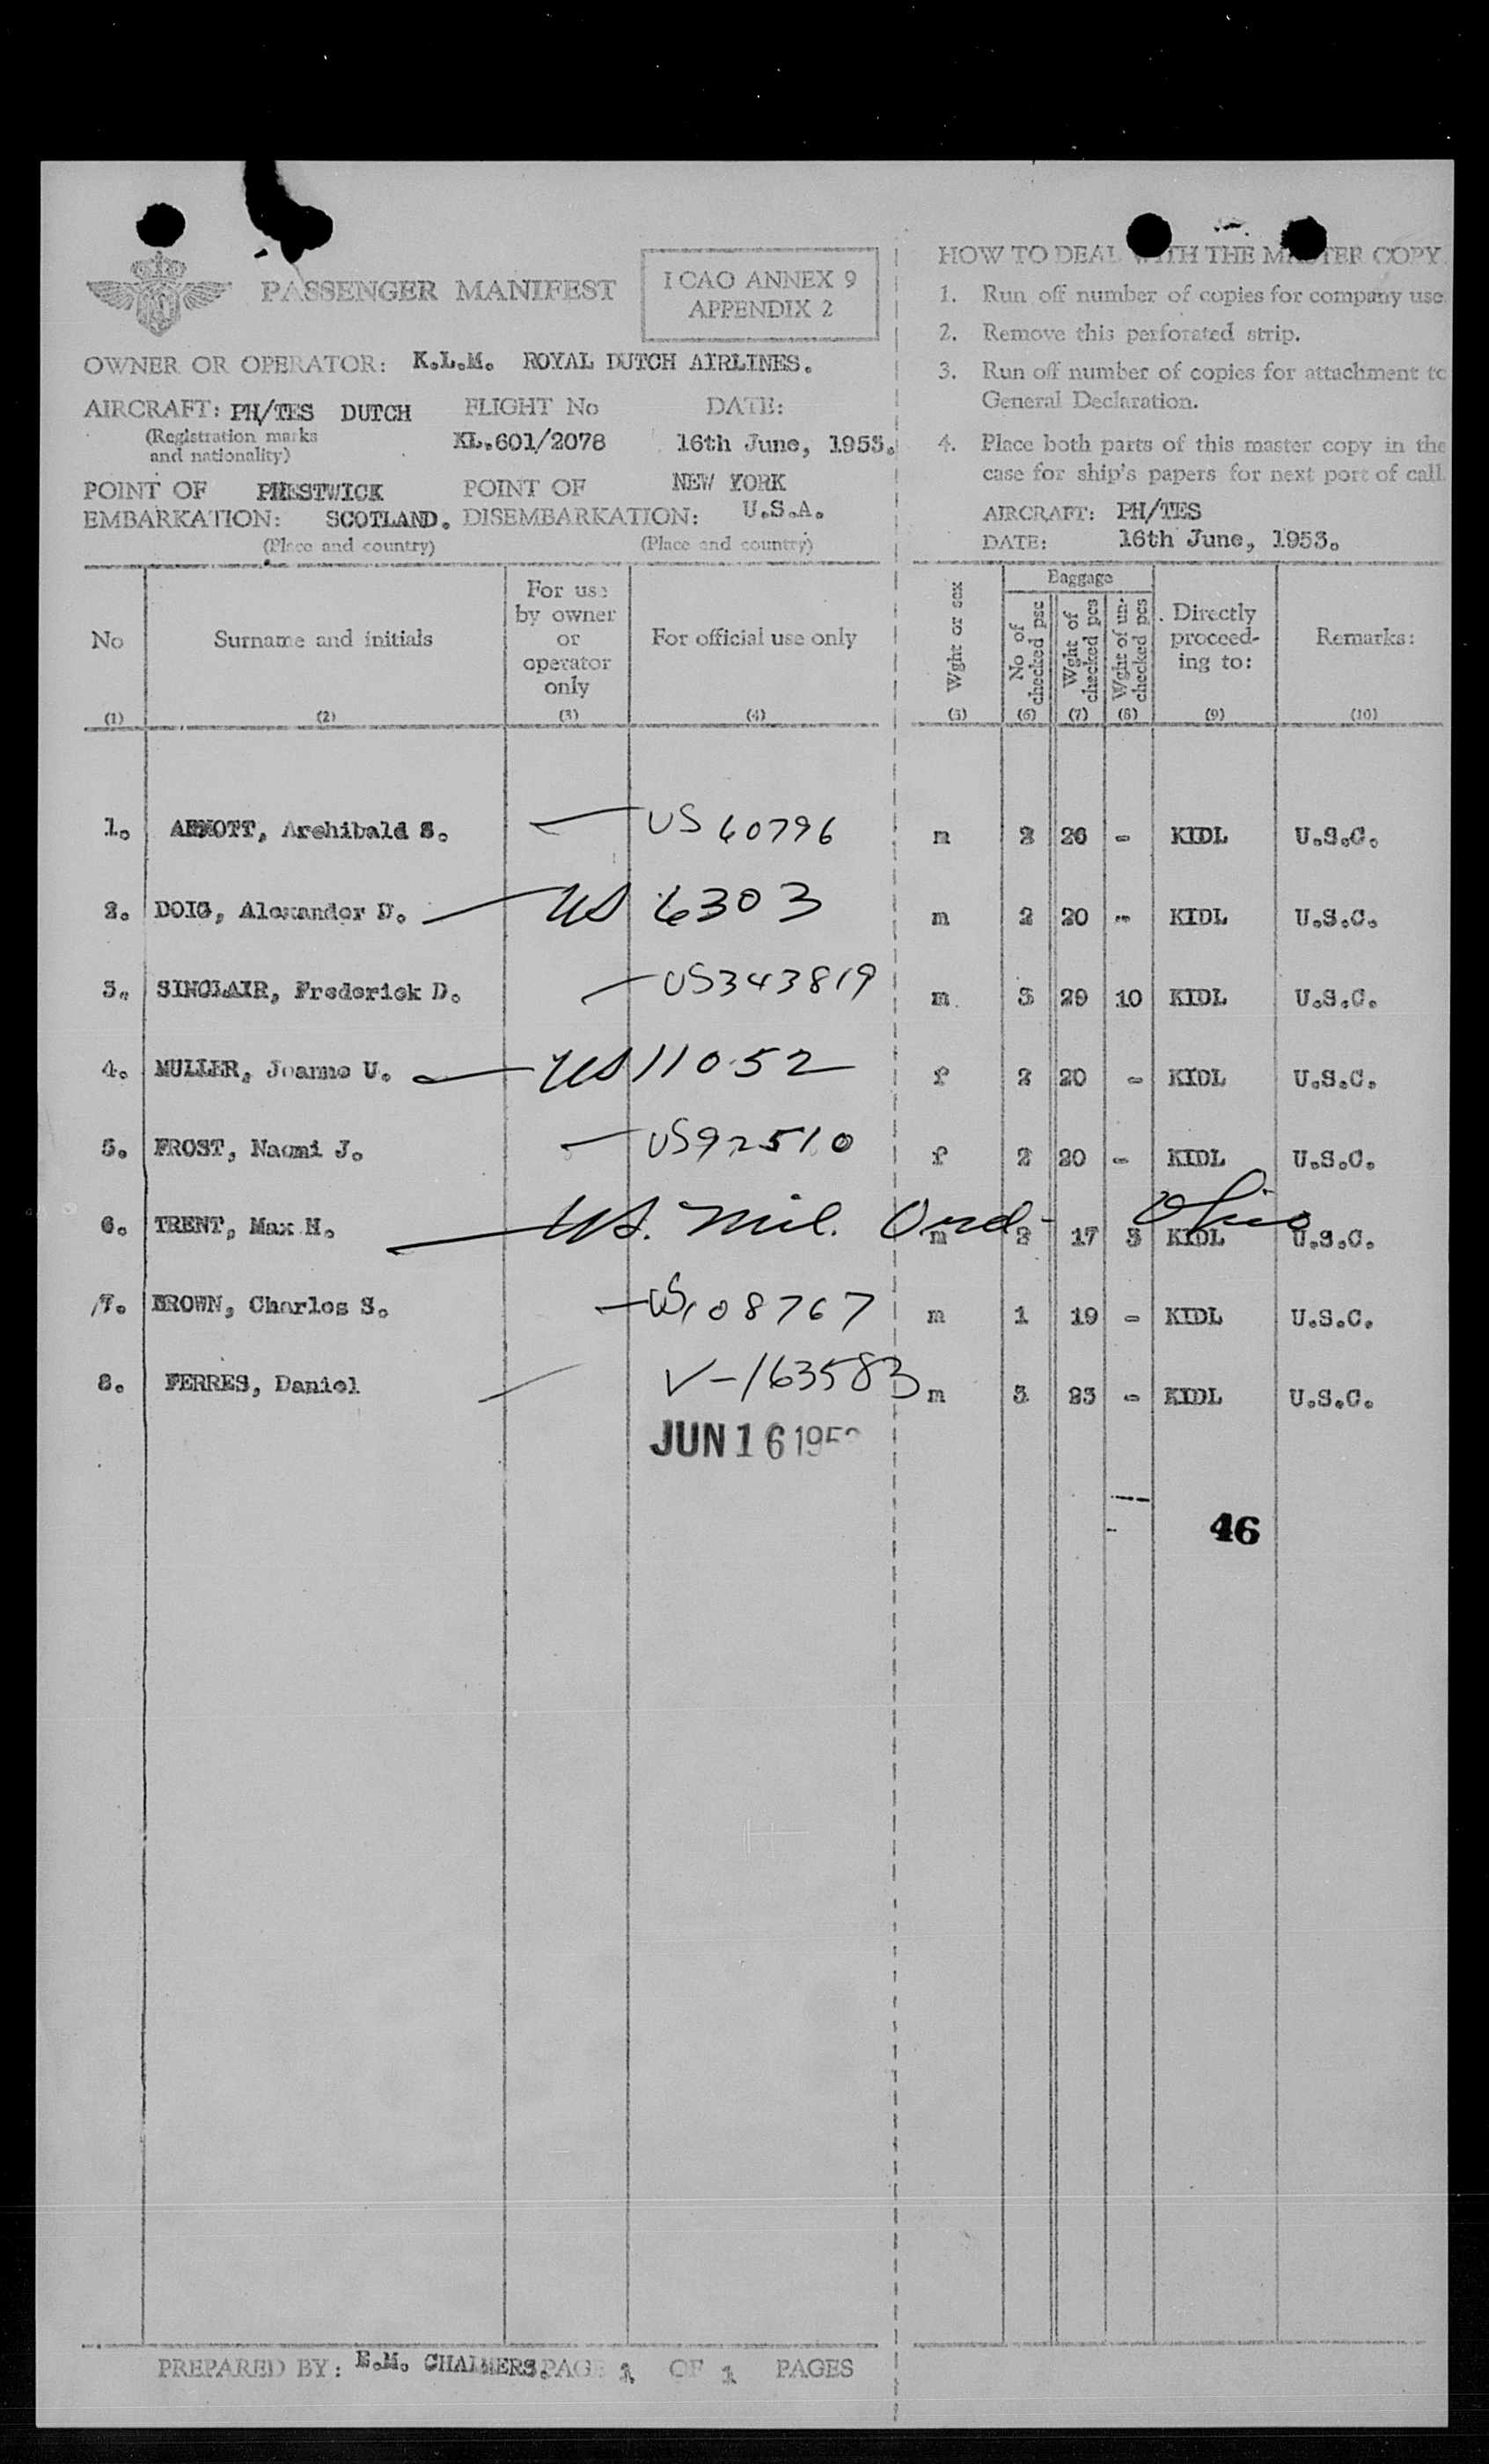 PASSENGER MANIFEST
ICAO ANNEX 9
APPENDIX 2
OWNER OR OPERATOR: K.L.M. ROYAL DUTCH AIRLINES.
AIRCRAFT: PH/TES DUTCH FLIGHT No DATE:
(Registration marks
and nationality)
KL.601/2078 16th June, 1953.
POINT OF PRESTWICK POINT OF NEW YORK
EMBARKATION: SCOTLAND. DISEMBARKATION: U.S.A.
(Place and country) (Place and country)
HOW TO DEAL WITH THE MASTER COPY
1. Run off number of copies for company use.
2. Remove this perforated strip.
3. Run off number of copies for attachment to
General Declaration.
4. Place both parts of this master copy in the
case for ship's papers for next port of call.
AIRCRAFT: PH/TES
DATE: 16th June, 1953.
No Surname and initials For use by owner or operator only For official use only Wght or sex Baggage No of checked psc Wght of checked pcs Wght of un-checked pcs Directly proceed-ing to: Remarks:
(1) (2) (3) (4) (5) (6) (7) (8) (9) (10)
1. Archibald S. — US 60796 m 2 26 - KIDL U.S.C.
2. DOIG, Alexander D. — US 6303 m 2 20 - KIDL U.S.C.
3. SINCLAIR, Frederick D. — US343819 m 3 29 10 KIDL U.S.C.
4. MULLER, Joanne U. — US 11052 f 2 20 - KIDL U.S.C.
5. FROST, Naomi J. — US92510 f 2 20 - KIDL U.S.C.
6. TRENT, Max H. — US. Mil. Ord- Ohio m 2 17 3 KIDL U.S.C.
7. BROWN, Charles S. — US108767 m 1 19 - KIDL U.S.C.
8. FERRES, Daniel — V-163583 m 3 23 - KIDL U.S.C.
JUN 16 195
46
PREPARED BY: E.M. CHALMERS. PAGE 1 OF 1 PAGES